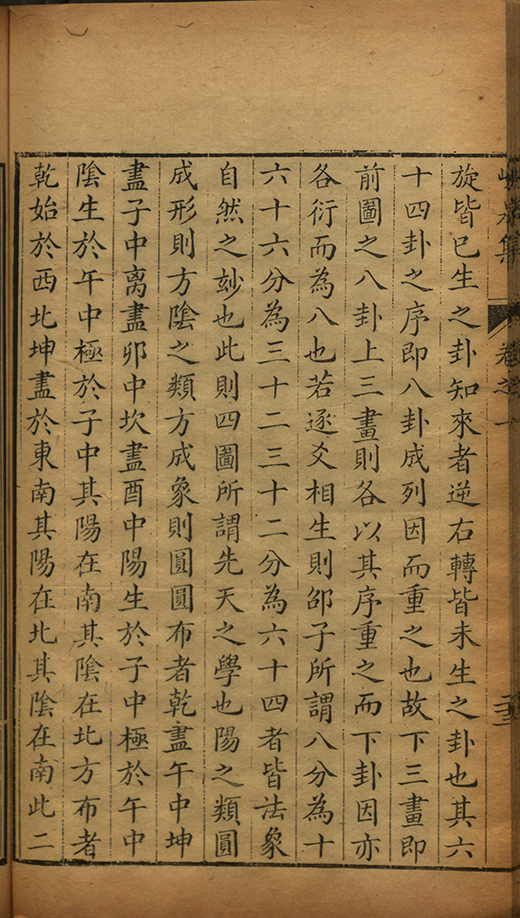 泉集
卷之一
旋皆已生之卦知來者逆右轉皆未生之卦也其六
十四卦之序即八卦成列因而重之也故下三畫即
前圖之八卦上三畫則各以其序重之而下卦因亦
各衍而為八也若逐爻相生則邵子所謂八分為十
六十六分為三十二三十二分為六十四者皆法象
自然之玅也此則四圖所謂先天之學也陽之類圓
成形則方陰之類方成象則圓圓布者乾盡午中坤
盡子中离盡卯中坎盡酉中陽生於子中極於午中
陰生於午中極於子中其陽在南其陰在北方布者
乾始於西北坤盡於東南其陽在北其陰在南此二